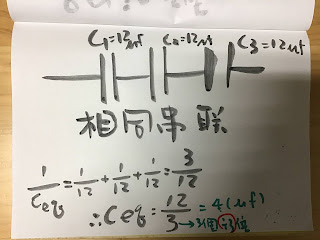 C₁=12μf C₂=12μf C3=12μf
相同串联
1/Ceq = 1/12 + 1/12 + 1/12 = 3/12
∴Ceq = 12/3 = 4(μf)
→3個